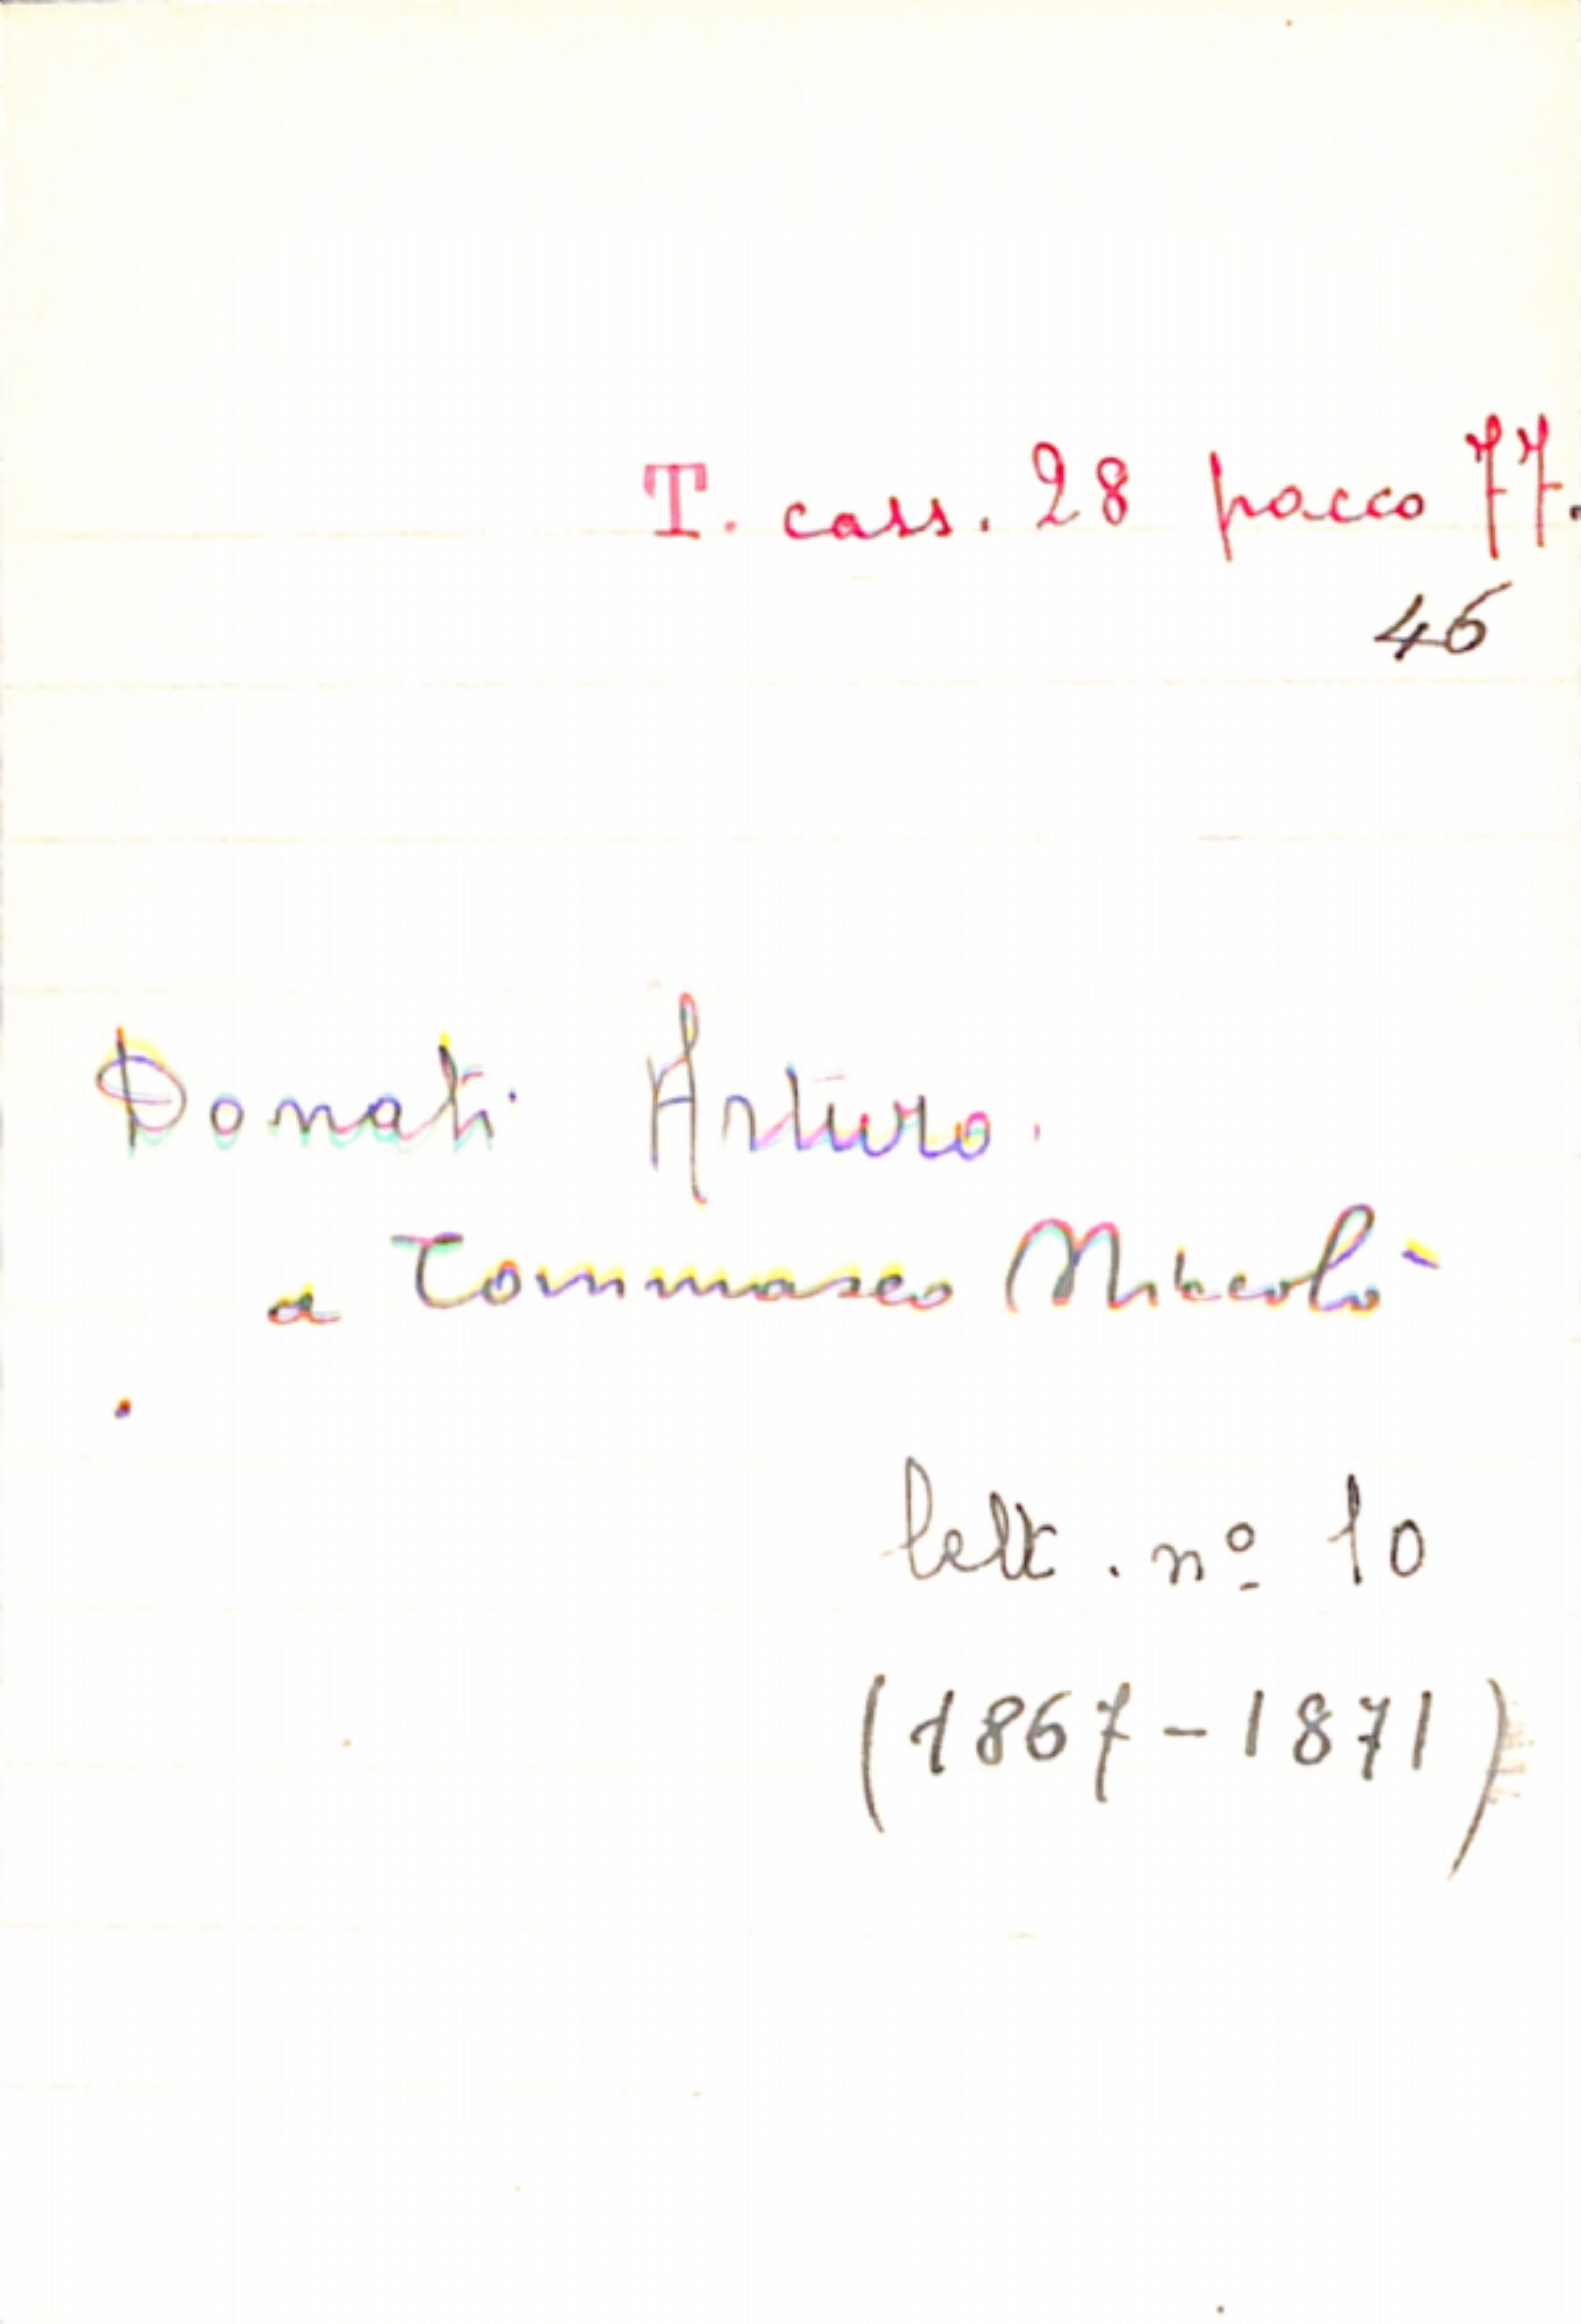 T. cass. 28 pacco 77.
46
Donati Arturo.
a Tommaseo Niccolò
lett. nº 10
(1867-1871)